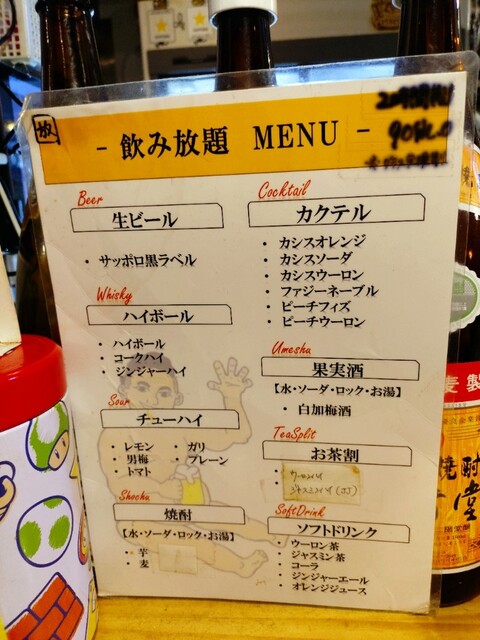 - 飲み放題 MENU -
Beer
生ビール
・ サッポロ黒ラベル
Whisky
ハイボール
・ ハイボール
・ コークハイ
・ ジンジャーハイ
Sour
チューハイ
・ レモン ・ ガリ
・ 男梅 ・ プレーン
・ トマト
Shochu
焼酎
【水・ソーダ・ロック・お湯】
・ 芋
・ 麦
Cocktail
カクテル
・ カシスオレンジ
・ カシスソーダ
・ カシスウーロン
・ ファジーネーブル
・ ピーチフィズ
・ ピーチウーロン
Umeshu
果実酒
【水・ソーダ・ロック・お湯】
・ 白加梅酒
TeaSplit
お茶割
SoftDrink
ソフトドリンク
・ ウーロン茶
・ ジャスミン茶
・ コーラ
・ ジンジャーエール
・ オレンジジュース
麦 製
焼酎
堂